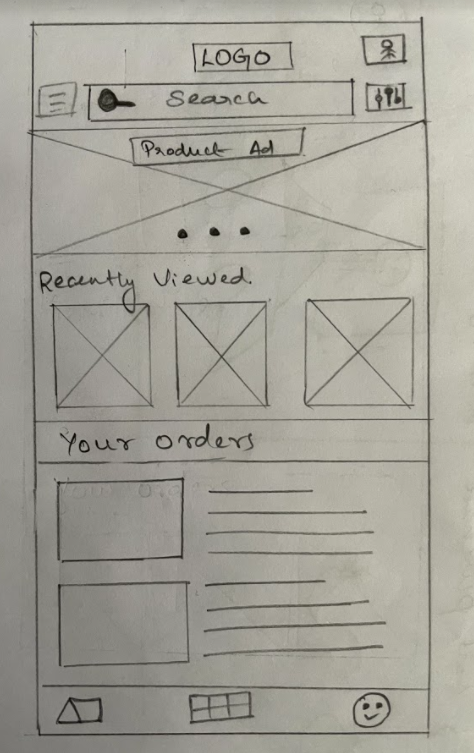 LOGO
Search
Product Ad
Recently Viewed.
Your orders